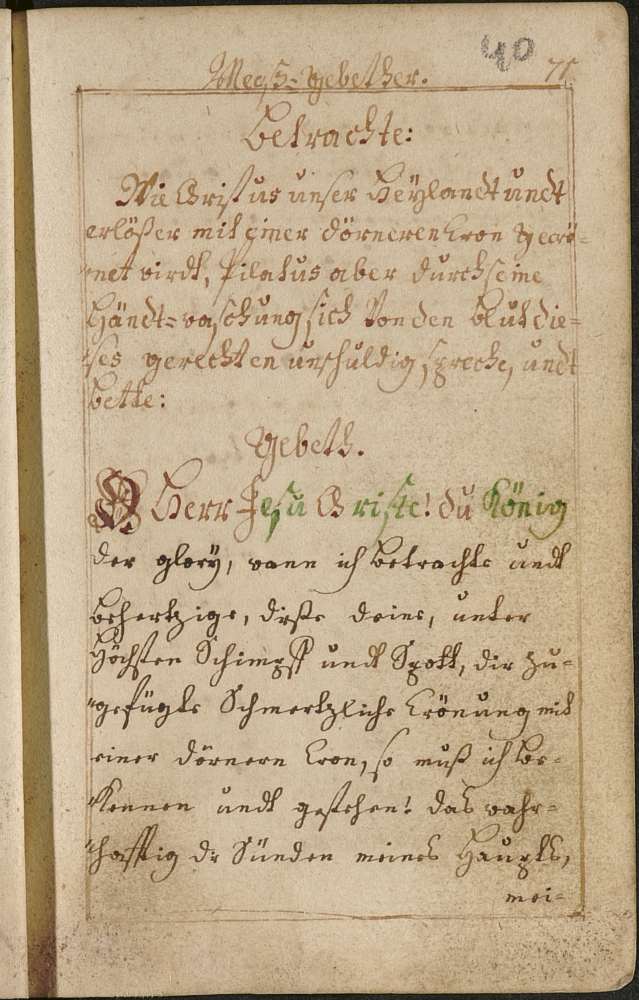 40
Meeß-Gebether. 75
Betrachte:
Wie Christus unser Heÿlandt undt
erlößer mit einer dörneren Cron gecrö-
net wirdt, Pilatus aber durch seine
Händt-waschung sich von den blut die-
ses gerechten unschuldig spreche, undt
bette:
Gebeth.
O Herr Jesu Christe! du König
der glory, wann ich betrachte undt
behertzige, diße deine, unter
Höchsten Schimpff undt Spott, dir zu-
gefügte Schmertzliche Crönung mit
einer dörnern Cron, so muß ich be-
kennen undt gestehen! das wahr-
hafftig die Sünden meines Haupts,
mei-